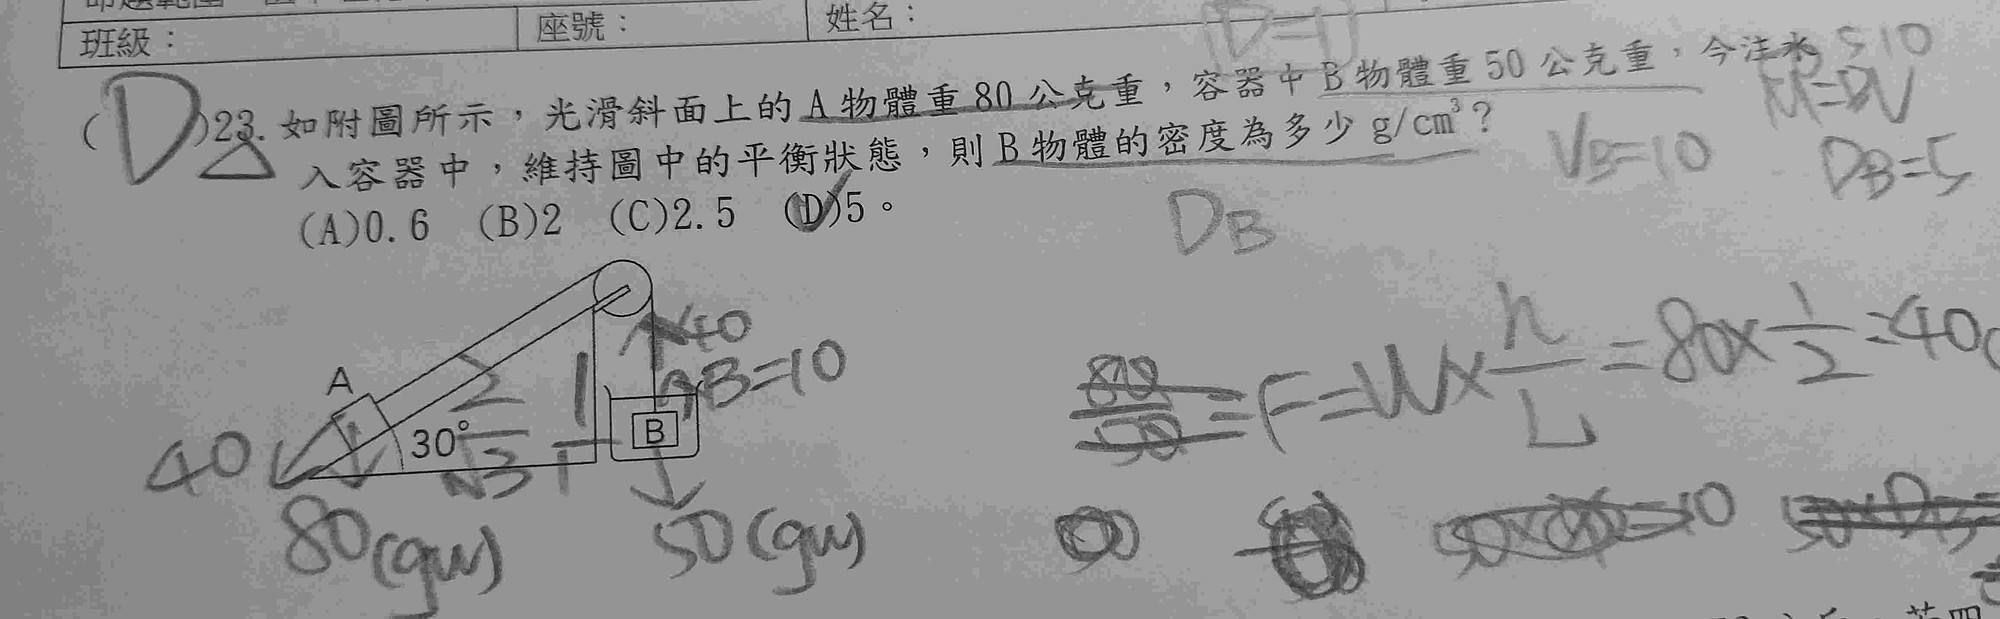 班級： 座號： 姓名：
(D)23. 如附圖所示，光滑斜面上的 A 物體重 80 公克重，容器中 B 物體重 50 公克重，今注水
入容器中，維持圖中的平衡狀態，則 B 物體的密度為多少 g/cm³？
(A)0.6 (B)2 (C)2.5 (D)5。
510
M=DV
VB=10 DB=5
DB
40
B=10
A
2
1
30°
√3
1
B
40
80(gw)
50(gw)
80
50
=F=W×h/L=80×1/2=40
=10